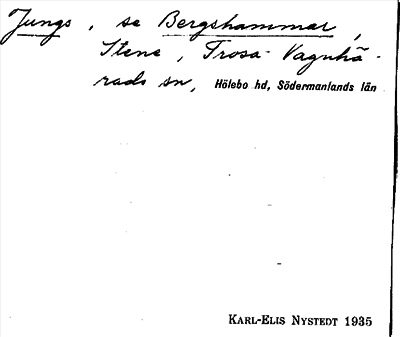 Jungs, se Bergshammar,
Stene, Trosa-Vagnhä-
rads sn, Hölebo hd, Södermanlands län
KARL-ELIS NYSTEDT 1935